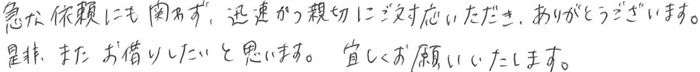 急な依頼にも関わず、迅速かつ親切にご対応いただき、ありがとうございます。
是非、またお借りしたいと思います。 宜しくお願いいたします。